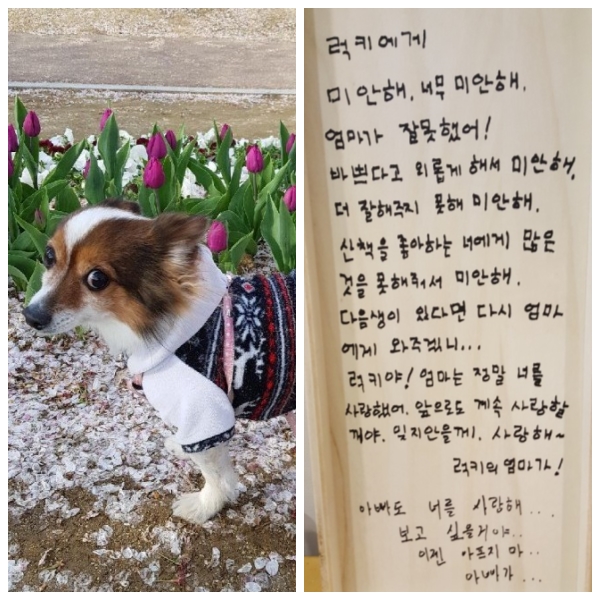 럭키에게
미안해. 너무 미안해.
엄마가 잘못했어!
바쁘다고 외롭게 해서 미안해.
더 잘해주지 못해 미안해.
산책을 좋아하는 너에게 많은
것을 못해줘서 미안해.
다음생이 있다면 다시 엄마
에게 와주겠니...
럭키야! 엄마는 정말 너를
사랑했어. 앞으로도 계속 사랑할
거야. 잊지안을께. 사랑해~
럭키의 엄마가!
아빠도 너를 사랑해...
보고 싶을거야..
이젠 아프지 마..
아빠가...